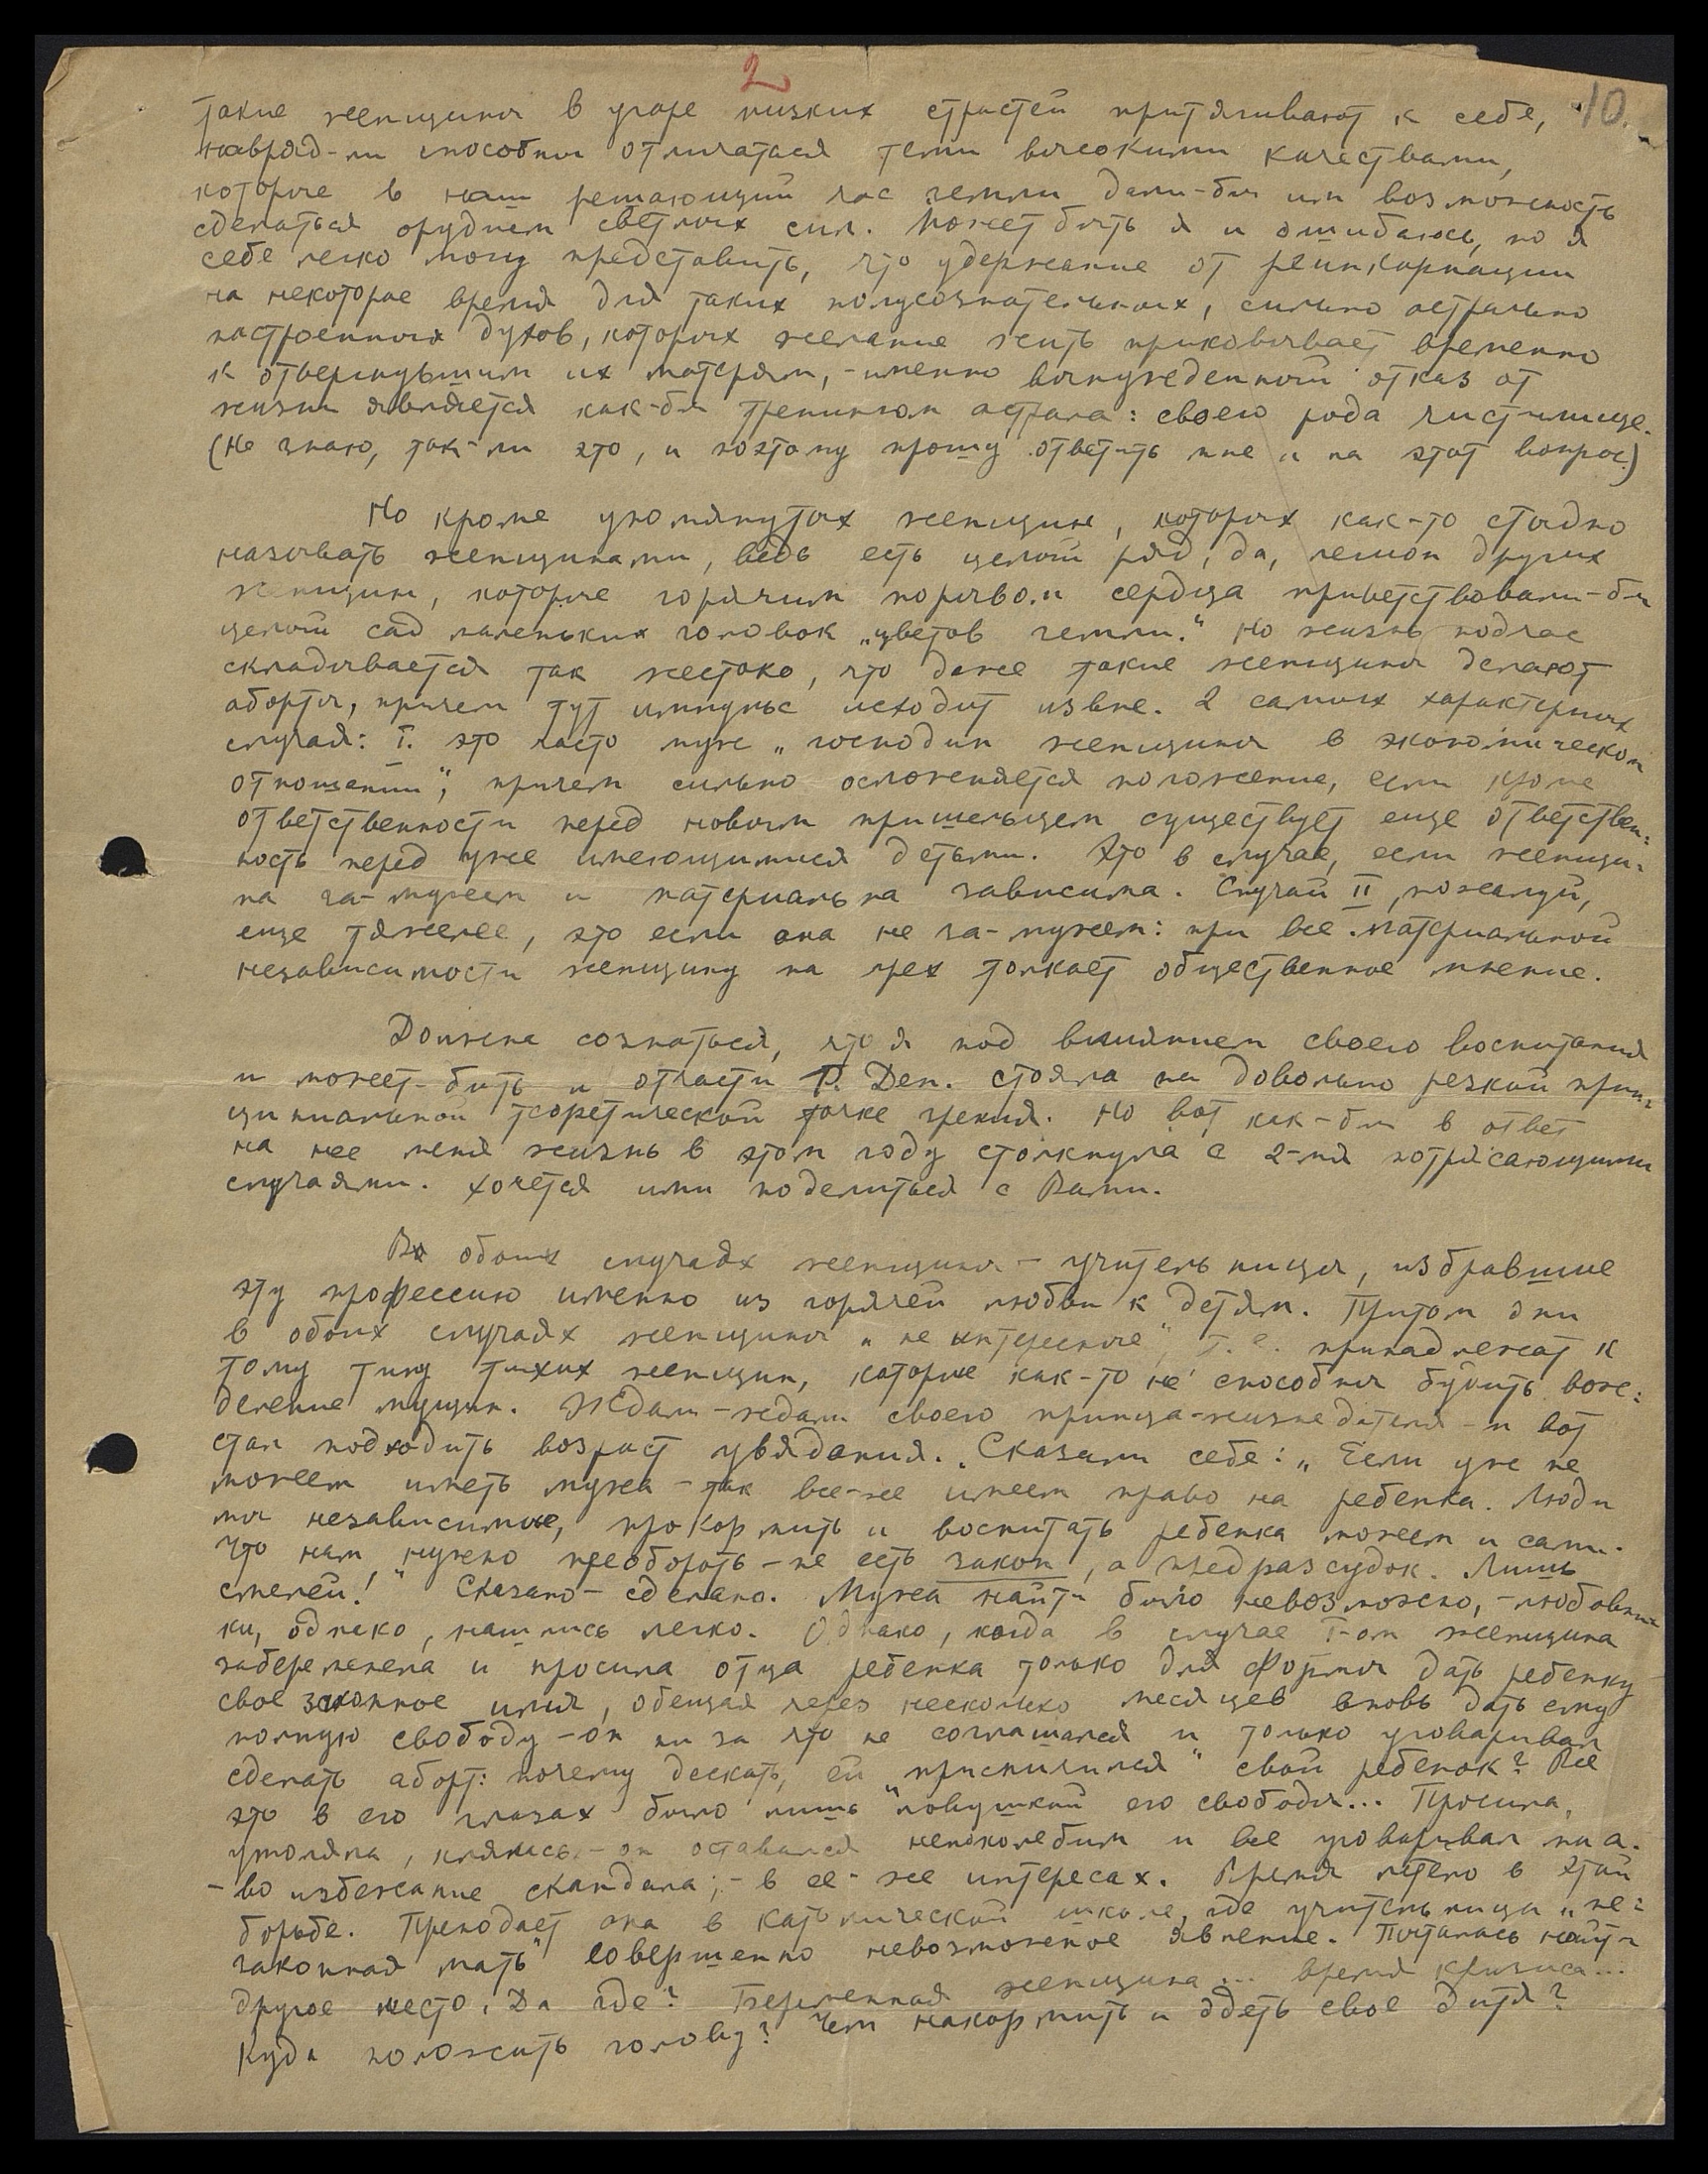 2
10.
такие женщины в угаре низких страстей притягивают к себе,
навряд-ли способны отличаться теми высокими качествами,
которые в наш решающий час земли дали-бы им возможность
сделаться орудием светлых сил. Может быть я и ошибаюсь, но я
себе легко могу представить, что удержание от реинкарнации
на некоторое время для таких полусознательных, сильно астрально
настроенных духов, которых желание жить приковывает временно
к отвергнувшим их матерям, - именно вынужденный отказ от
жизни является как-бы тренингом астрала: своего рода чистилище.
(Не знаю, так-ли это, и поэтому прошу ответить мне и на этот вопрос.)
Но кроме упомянутых женщин, которых как-то стыдно
называть женщинами, ведь есть целый ряд, да, легион других
женщин, которые горячим порывом сердца приветствовали-бы
целый сад маленьких головок „цветов земли." Но жизнь подчас
складывается так жестоко, что даже такие женщины делают
аборты, причем тут импульс исходит извне. 2 самых характерных
случая: I. это часто муж „господин женщины в экономическом
отношении", причем сильно осложняется положение, если кроме
ответственности перед новым пришельцем существует еще ответствен=
ность перед уже имеющимися детьми. Это в случае, если женщи=
на за-мужем и материально зависима. Случай II, пожалуй,
еще тяжелее, это если она не за-мужем: при все материальной
независимости женщину на грех толкает общественное мнение.
Должна сознаться, что я под влиянием своего воспитания
и может-быть и отчасти Р. Ден. стояла на довольно резкой прин=
ципиальной теоретической точке зрения. Но вот как-бы в ответ
на нее меня жизнь в этом году столкнула с 2-мя потрясающими
случаями. Хочется ими поделиться с Вами.
В обоих случаях женщины - учительницы, избравшие
эту профессию именно из горячей любви к детям. Притом они
в обоих случаях женщины „не интересные", т.е. принадлежат к
тому типу тихих женщин, которые как-то не способны будить вожде=
деление мущин. Ждали-ждали своего принца-жизнедателя - и вот
стал подходить возраст увядания. Сказали себе: „Если уже не
можем иметь мужа - так все-же имеем право на ребенка. Люди
мы независимые, прокормить и воспитать ребенка можем и сами.
Что нам нужно преобороть - не есть закон, а предрассудок. Лишь
смелей!" Сказано - сделано. Мужа найти было невозможно, - любовни=
ки, однако, нашлись легко. Однако, когда в случае I-ом женщина
забеременела и просила отца ребенка только для формы дать ребенку
свое законное имя, обещая через несколько месяцев вновь дать ему
полную свободу - он ни за что не соглашался и только уговаривал
сделать аборт: почему дескать, ей „приспичился" свой ребенок? Все
это в его глазах было лишь ловушкой его свободы... Просила,
умоляла, клялась, - он оставался непоколебим и все уговаривал на а.
- во избежание скандала; - в ее-же интересах. Время летело в этой
борьбе. Преподает она в католической школе, где учительница „не=
законная мать" совершенно невозможное явление. Пыталась найти
другое место. Да где? Беременная женщина... время кризиса...
Куда положить голову? Чем накормить и одеть свое дитя?